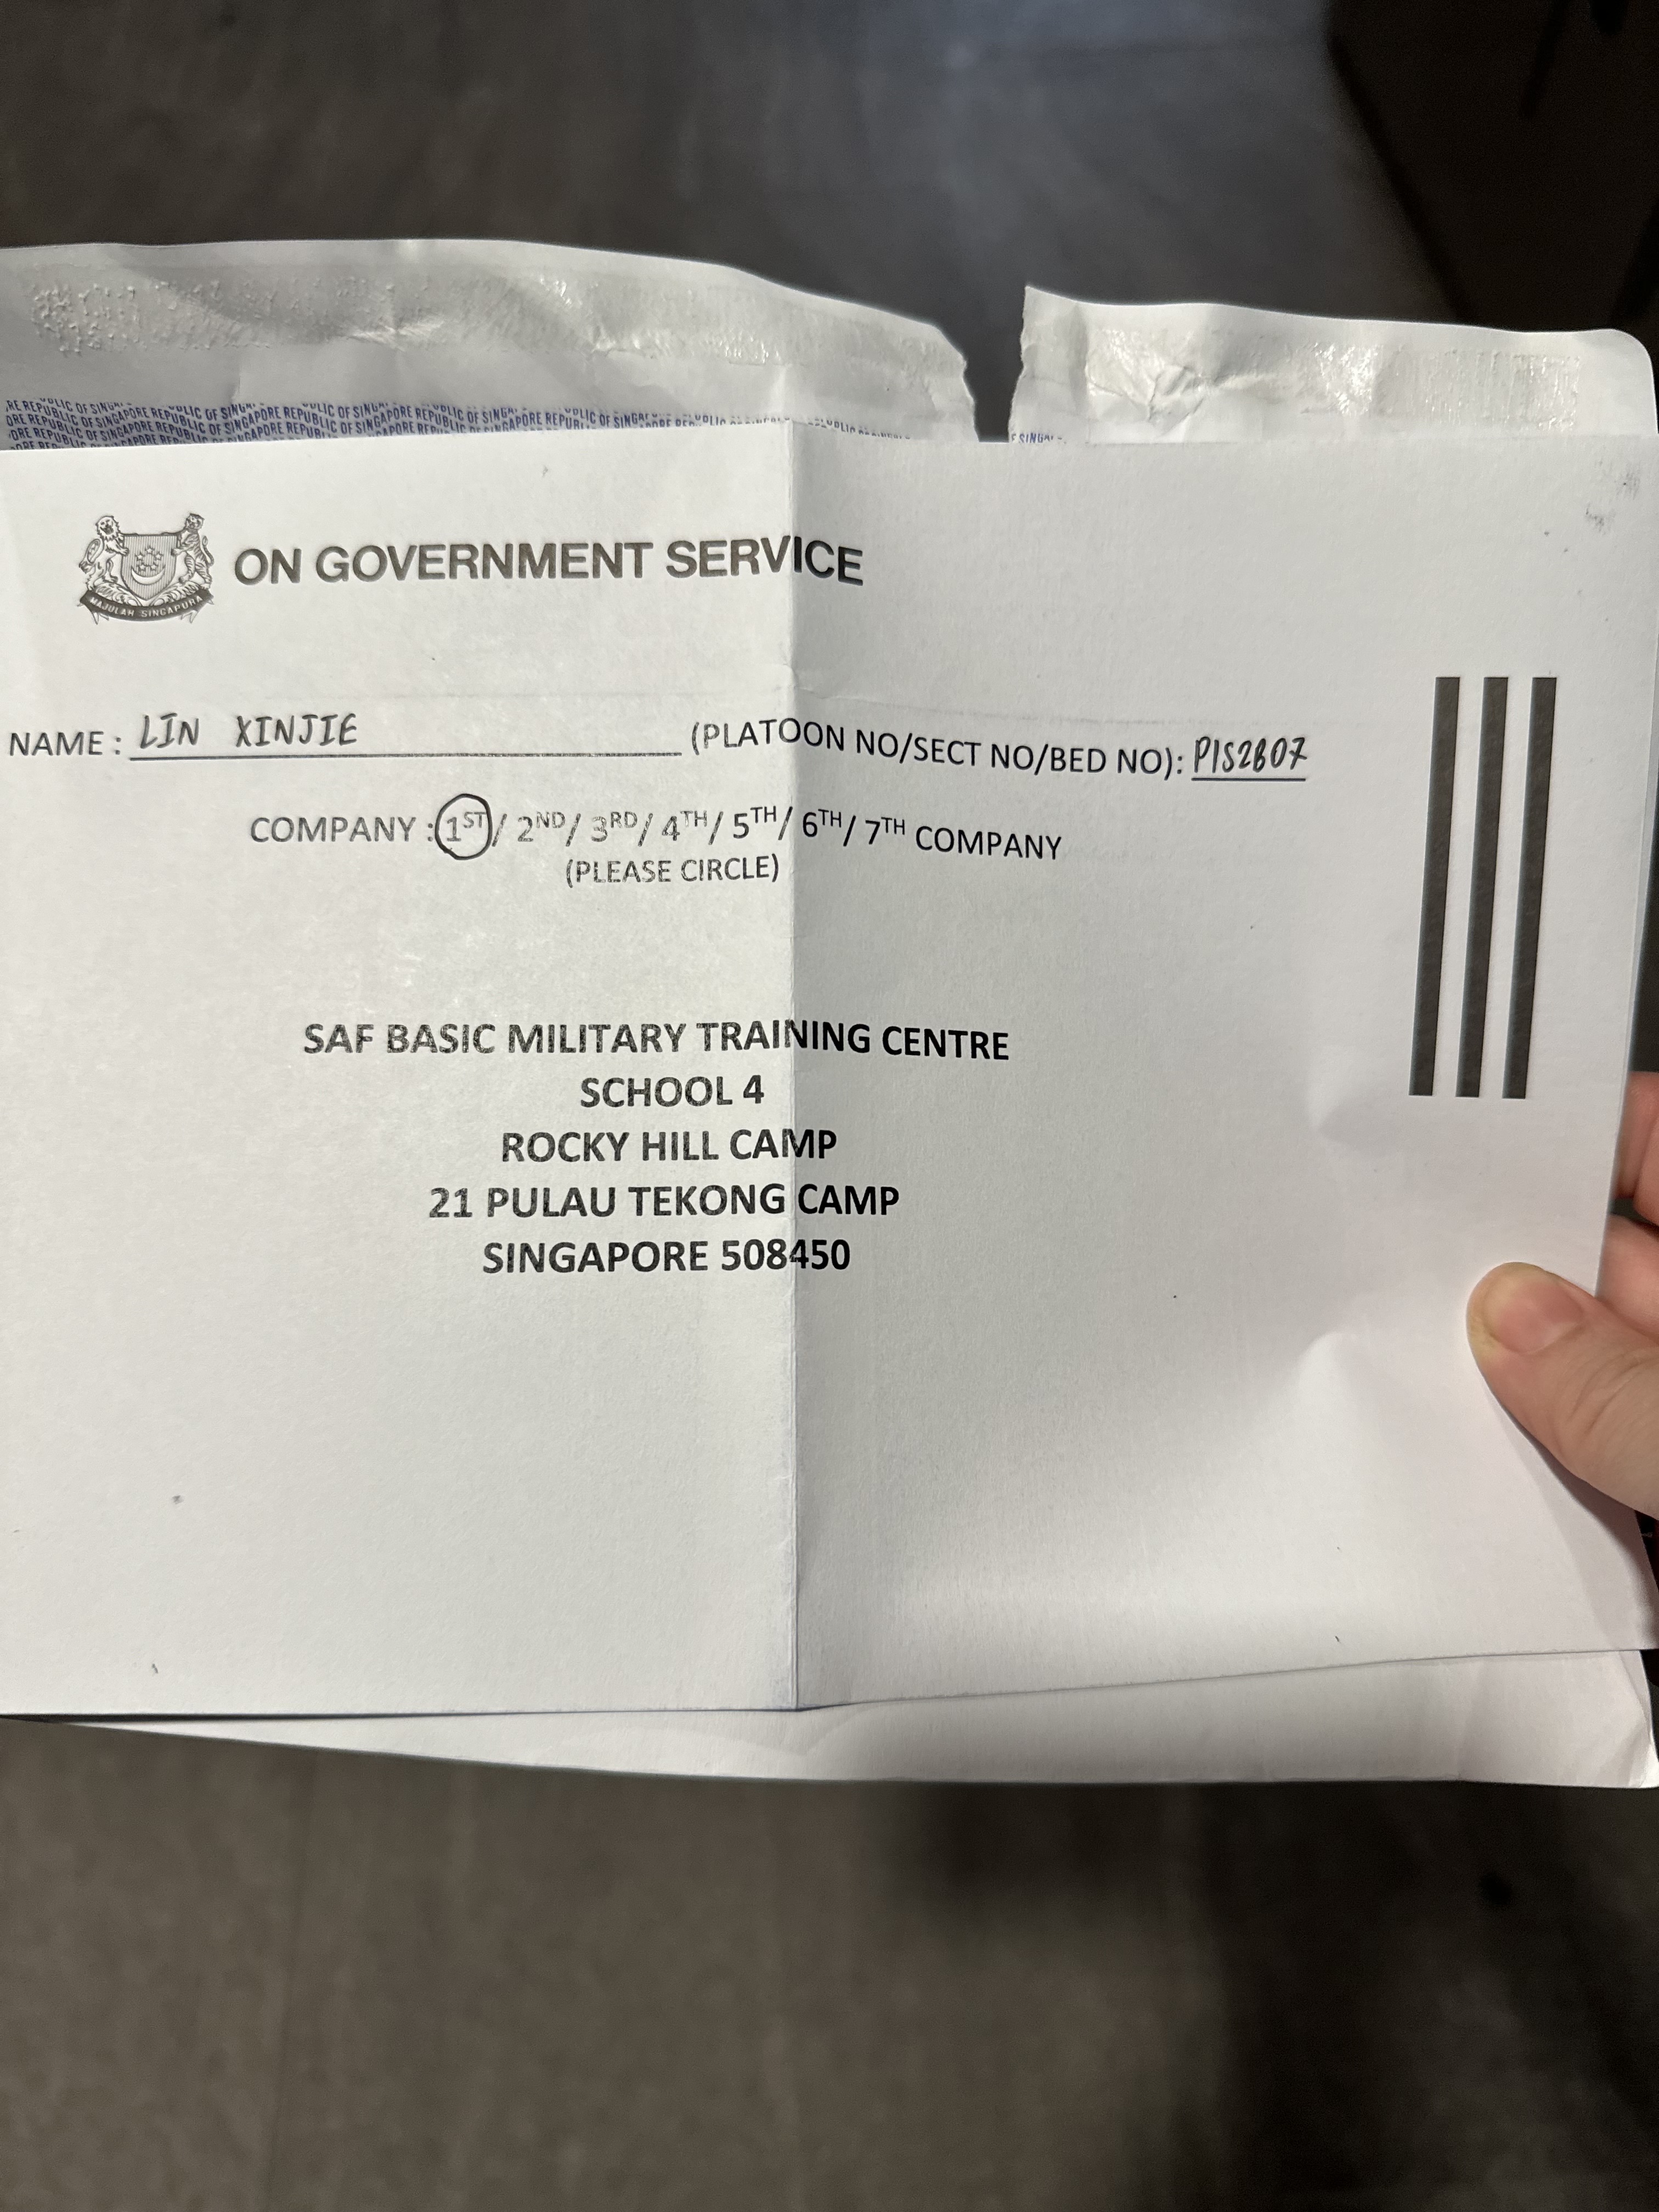 REPUBLIC OF SINGAPORE REPUBLIC OF SINGAPORE REPUBLIC OF SINGAPORE REPUBLIC OF SINGAPORE
MAJULAH SINGAPURA
ON GOVERNMENT SERVICE
NAME : LIN XINJIE (PLATOON NO/SECT NO/BED NO): P1S2B07
COMPANY : 1ST / 2ND / 3RD / 4TH / 5TH / 6TH / 7TH COMPANY
(PLEASE CIRCLE)
SAF BASIC MILITARY TRAINING CENTRE
SCHOOL 4
ROCKY HILL CAMP
21 PULAU TEKONG CAMP
SINGAPORE 508450